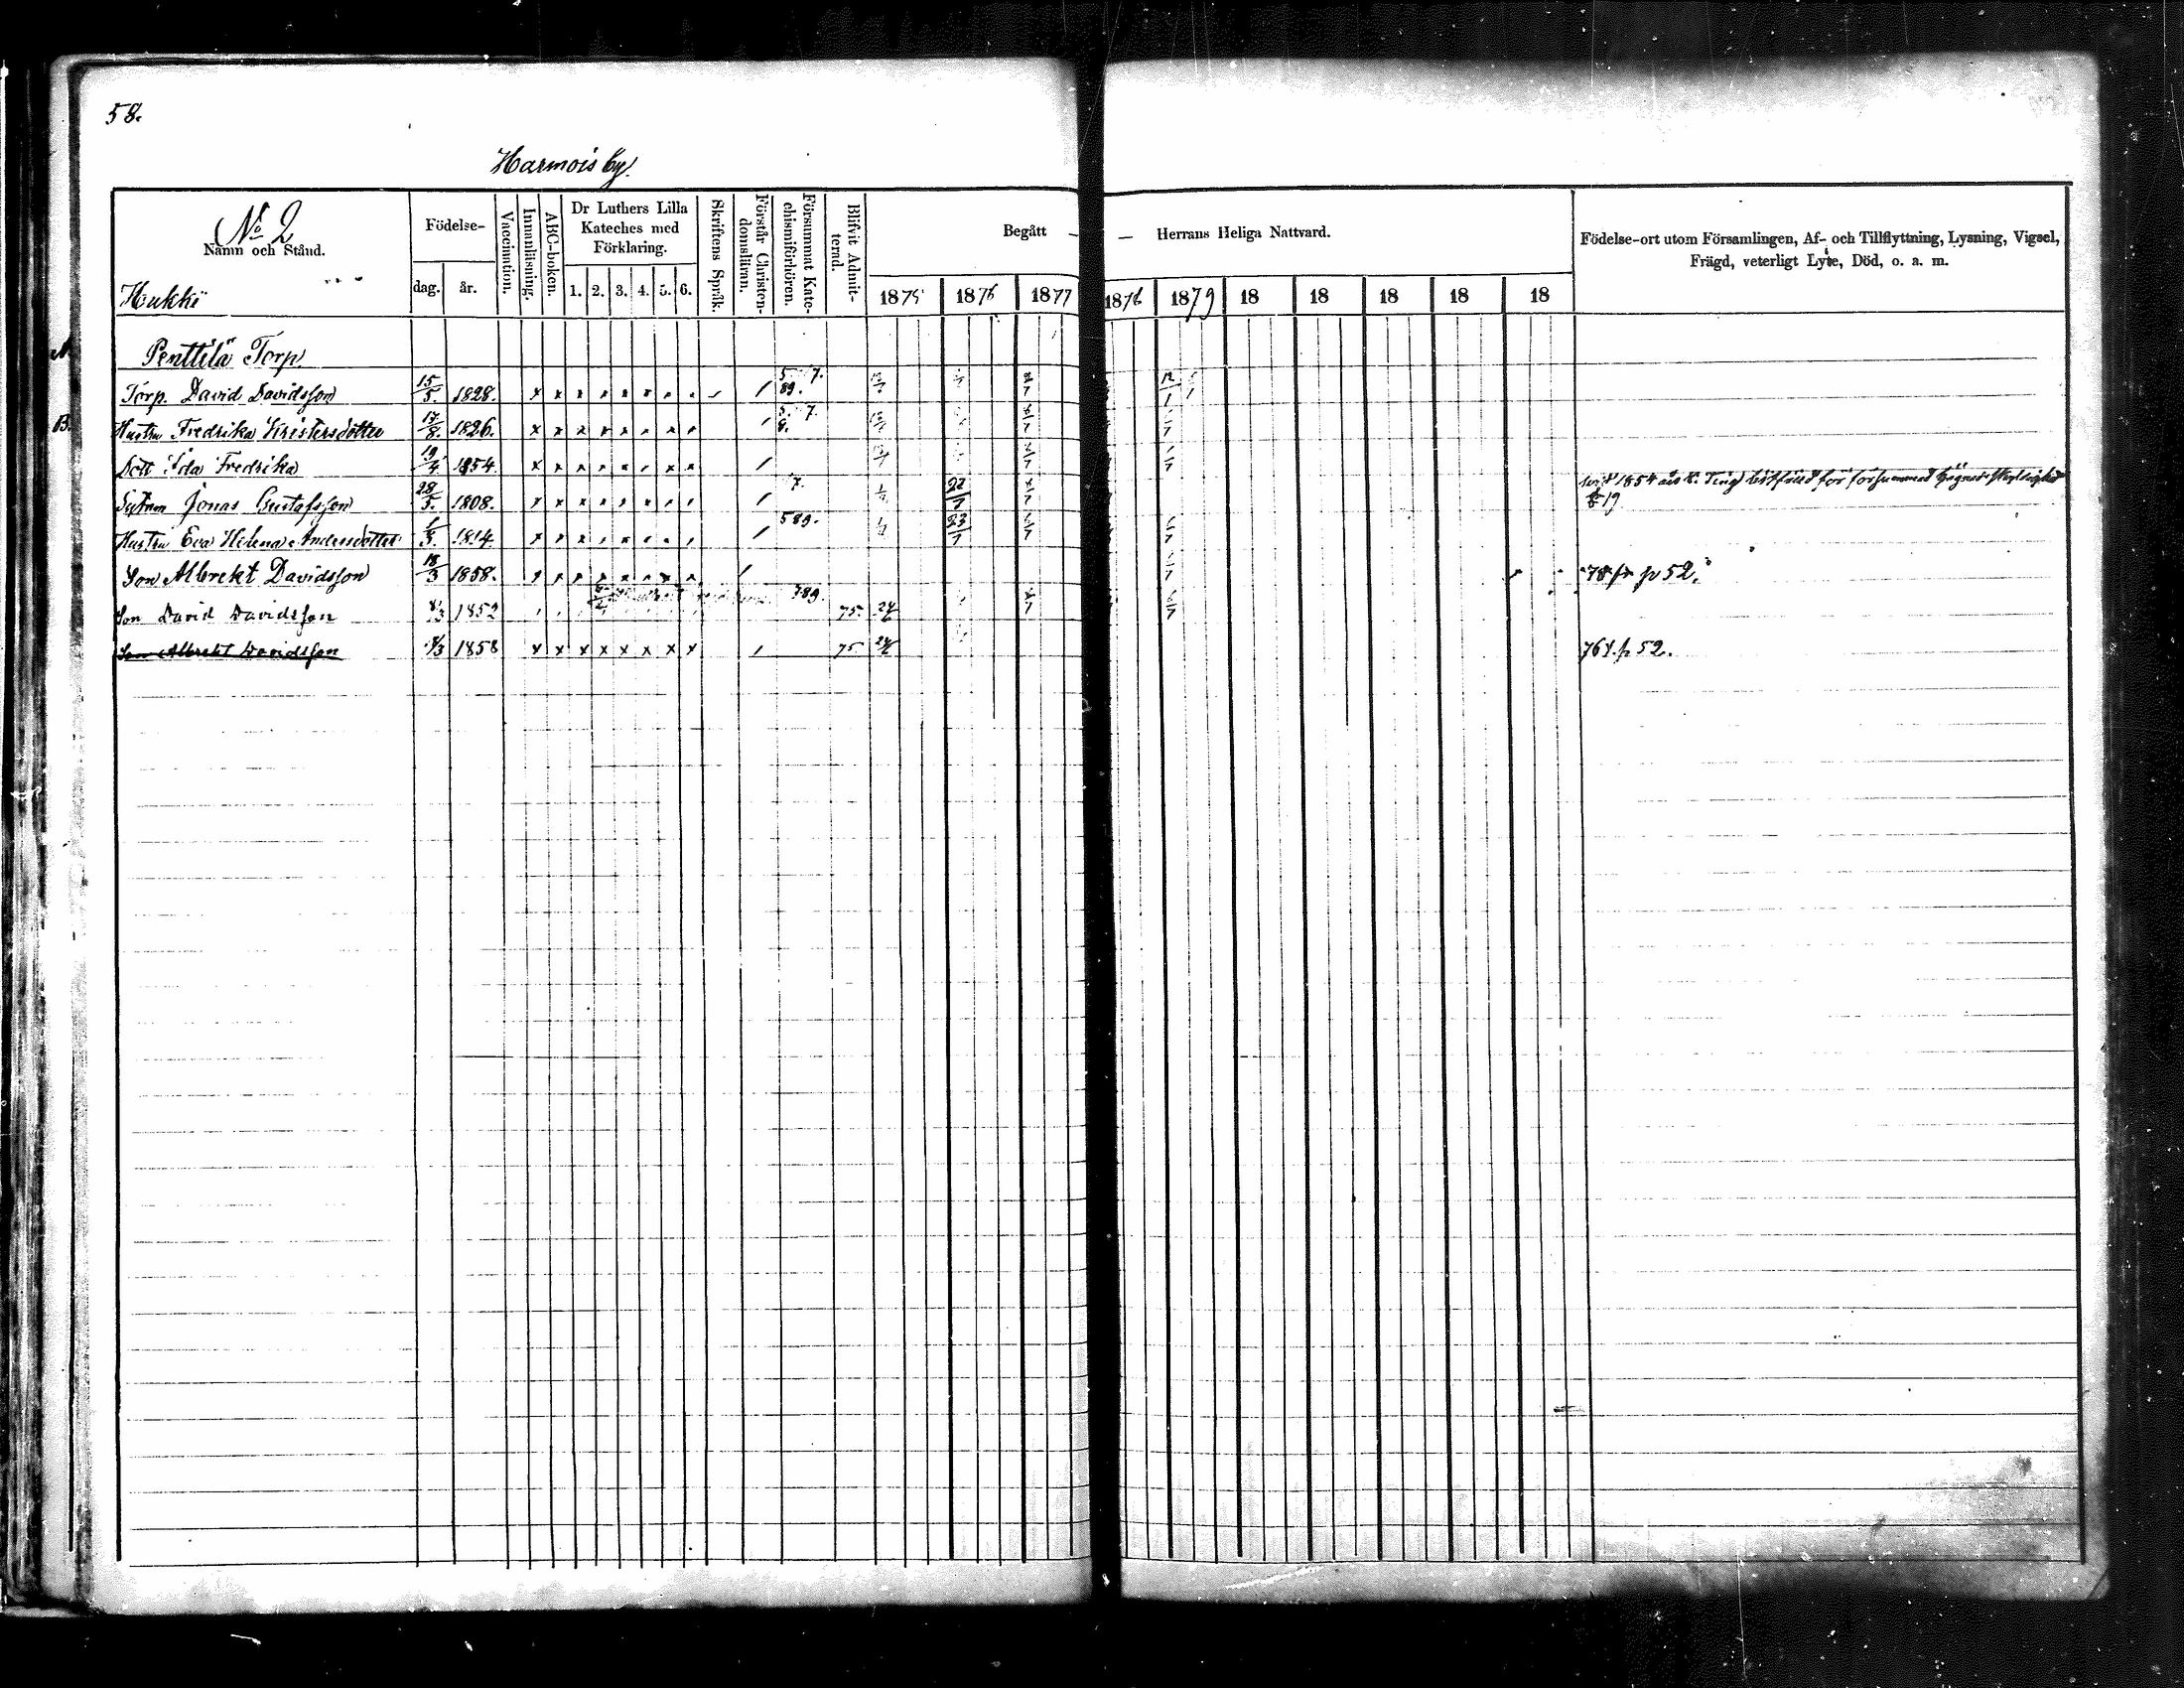 58.
Harmois by.
No 2
Namn och Stånd.
Hukki
Födelse-
dag. år.
Vaccination.
Innanläsning.
ABC-boken.
Dr Luthers Lilla Kateches med Förklaring.
1. 2. 3. 4. 5. 6.
Skriftens Språk.
Förstår Christendomsläran.
Försummat Katechismiförhören.
Blifvit Admitterad.
Begått — — Herrans Heliga Nattvard.
1875 1876 1877 1878 1879 18 18 18 18 18
Födelse-ort utom Församlingen, Af- och Tillflyttning, Lysning, Vigsel,
Frägd, veterligt Lyte, Död, o. a. m.
Penttilä Torp.
Torp. David Davidsson 15/5. 1828. x x x x x x x x 5 7. 89. 12/1
Hustru Fredrika Kristersdotter 17/8. 1826. x x x x x x x x 5. 7. 8.
Dott Ida Fredrika 19/4. 1854 x x x x x x x x
Jonas Gustafsson 28/5. 1808. x x x x x x x x 7. 22/1 1854 Ting bötfälld för försummad
Hustru Eva Helena Andersdotter 1814. x x x x x x x x 589. 23/1
Son Albrekt Davidsson 18/3 1858. x x x x x x x x 78 fr p 52.
Son David Davidsson 1852 789. 75.
Son Albrekt Davidsson 1858 x x x x x x x x 75 76 f. p 52.